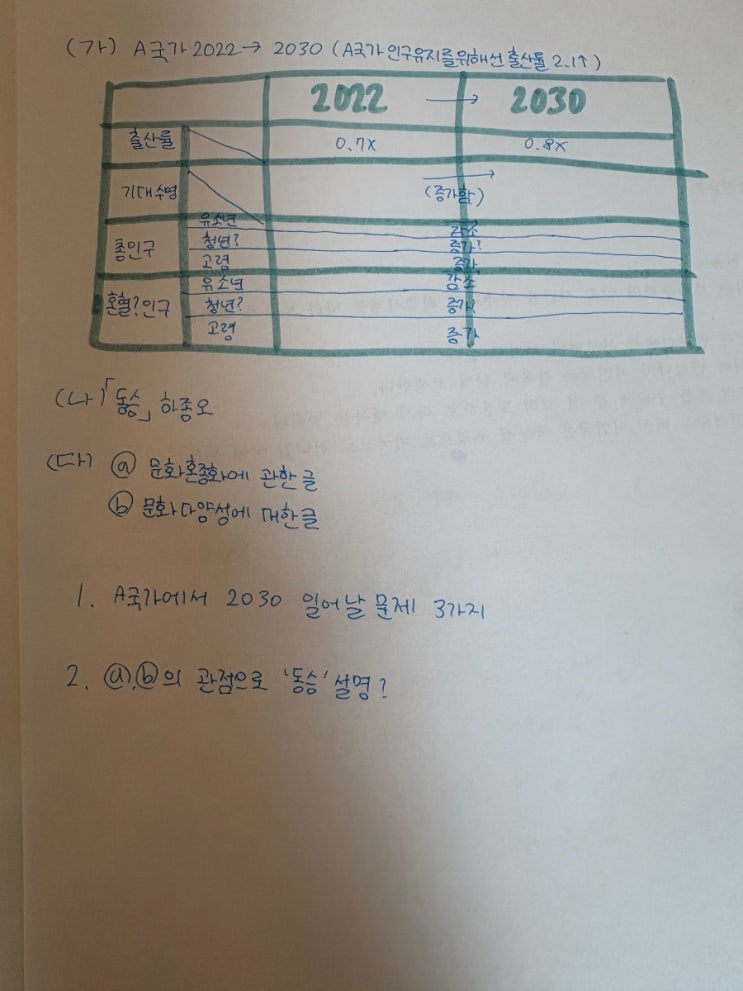 (가) A국가 2022 → 2030 (A국가 인구유지를위해선 출산률 2.1↑)
2022 → 2030
출산률 0.7X 0.8X
기대수명 → (증가함)
총인구
유소년 감소
청년? 증가?
고령 증가
혼혈?인구
유소년 감소
청년? 증가?
고령 증가
(나)「동승」 하종오
(다) ⓐ 문화혼종화에 관한글
ⓑ 문화다양성에 대한글
1. A국가에서 2030 일어날 문제 3가지
2. ⓐ,ⓑ의 관점으로 '동승' 설명?